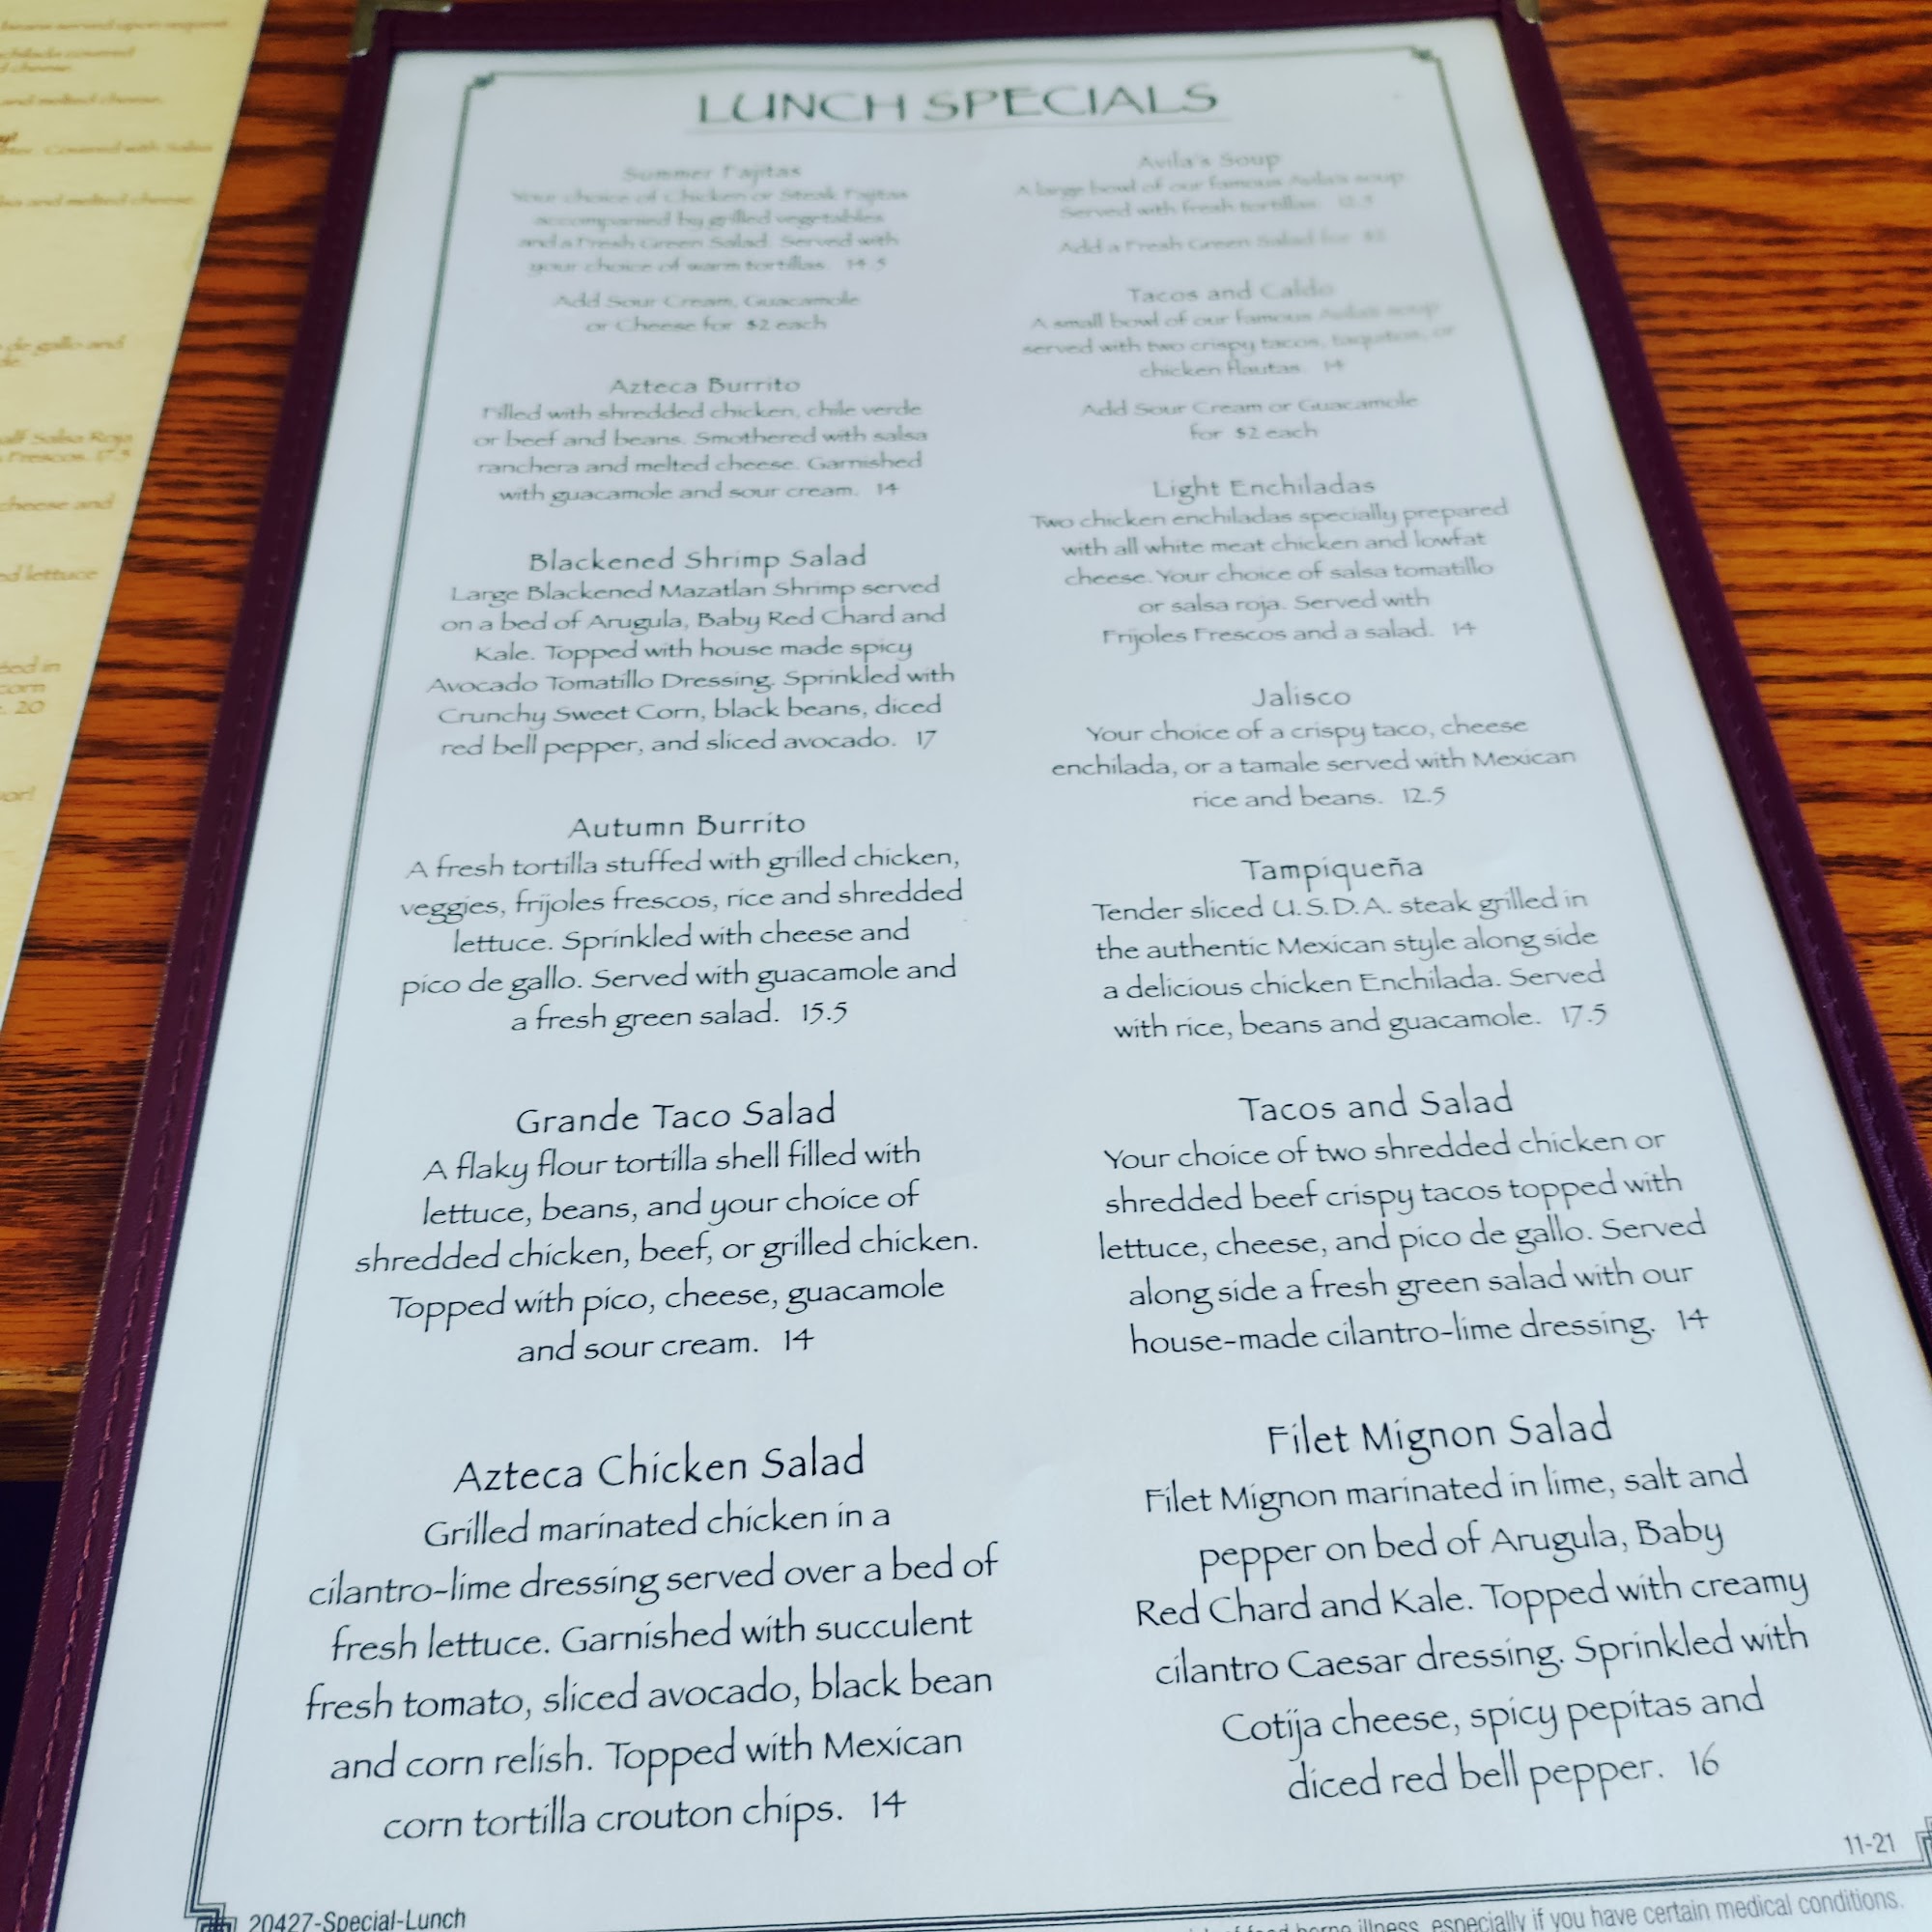 LUNCH SPECIALS
Summer Fajitas
Your choice of Chicken or Steak Fajitas
accompanied by grilled vegetables
and a Fresh Green Salad. Served with
your choice of warm tortillas. 14.5
Add Sour Cream, Guacamole
or Cheese for $2 each
Azteca Burrito
Filled with shredded chicken, chile verde
or beef and beans. Smothered with salsa
ranchera and melted cheese. Garnished
with guacamole and sour cream. 14
Blackened Shrimp Salad
Large Blackened Mazatlan Shrimp served
on a bed of Arugula, Baby Red Chard and
Kale. Topped with house made spicy
Avocado Tomatillo Dressing. Sprinkled with
Crunchy Sweet Corn, black beans, diced
red bell pepper, and sliced avocado. 17
Autumn Burrito
A fresh tortilla stuffed with grilled chicken,
veggies, frijoles frescos, rice and shredded
lettuce. Sprinkled with cheese and
pico de gallo. Served with guacamole and
a fresh green salad. 15.5
Grande Taco Salad
A flaky flour tortilla shell filled with
lettuce, beans, and your choice of
shredded chicken, beef, or grilled chicken.
Topped with pico, cheese, guacamole
and sour cream. 14
Azteca Chicken Salad
Grilled marinated chicken in a
cilantro-lime dressing served over a bed of
fresh lettuce. Garnished with succulent
fresh tomato, sliced avocado, black bean
and corn relish. Topped with Mexican
corn tortilla crouton chips. 14
Avila's Soup
A large bowl of our famous Avila's soup
Served with fresh tortillas.
Add a Fresh Green Salad for
Tacos and Caldo
A small bowl of our famous Avila's soup
served with two crispy tacos, taquitos, or
chicken flautas. 14
Add Sour Cream or Guacamole
for $2 each
Light Enchiladas
Two chicken enchiladas specially prepared
with all white meat chicken and lowfat
cheese. Your choice of salsa tomatillo
or salsa roja. Served with
Frijoles Frescos and a salad. 14
Jalisco
Your choice of a crispy taco, cheese
enchilada, or a tamale served with Mexican
rice and beans. 12.5
Tampiqueña
Tender sliced U.S.D.A. steak grilled in
the authentic Mexican style along side
a delicious chicken Enchilada. Served
with rice, beans and guacamole. 17.5
Tacos and Salad
Your choice of two shredded chicken or
shredded beef crispy tacos topped with
lettuce, cheese, and pico de gallo. Served
along side a fresh green salad with our
house-made cilantro-lime dressing. 14
Filet Mignon Salad
Filet Mignon marinated in lime, salt and
pepper on bed of Arugula, Baby
Red Chard and Kale. Topped with creamy
cilantro Caesar dressing. Sprinkled with
Cotija cheese, spicy pepitas and
diced red bell pepper. 16
11-21
20427-Special-Lunch
illness, especially if you have certain medical conditions.